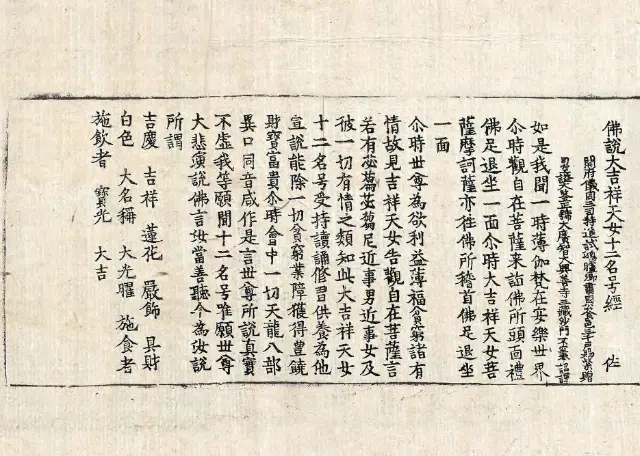 佛說大吉祥天女十二名号經 佐
開府儀同三司特進試鴻臚卿肅國公食邑三千戶賜紫贈
大廣智大興善寺三藏沙門 不空奉 詔譯
如是我聞一時薄伽梵在安樂世界
尒時觀自在菩薩來詣佛所頭面禮
佛足退坐一面尒時大吉祥天女菩
薩摩訶薩亦往佛所稽首佛足退坐
一面
尒時世尊為欲利益薄福貧窮諸有
情故見吉祥天女告觀自在菩薩言
若有苾蒭苾蒭尼近事男近事女及
彼一切有情之類知此大吉祥天女
十二名号受持讀誦修習供養為他
宣說能除一切貧窮業障獲得豊饒
財寶富貴尒時會中一切天龍八部
異口同音咸作是言世尊所說真實
不虛我等願聞十二名号唯願世尊
大悲演說佛言汝當善聽今為汝說
所謂
吉慶 吉祥 蓮花 嚴飾 具財
白色 大名稱 大光曜 施食者
施飲者 寶光 大吉